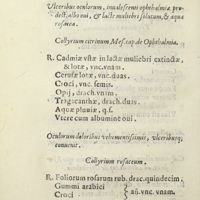 Vlceribus oculorum, inualescenti ophthalmiæ prodest,
albo oui, & lacte muliebri solutum, & aqua
rosacea.
Collyrium citrinum Mes. cap. de Ophthalmia.
R. Cadmiæ vstæ in lacte muliebri extinctæ,
& lotæ, vnc. vnam.
Cerussæ lotæ, vnc. duas.
Croci, vnc. semis.
Opij, drach. vnam.
Tragacanthæ, drach. duas.
Aquæ pluuiæ, q. s.
Vtere cum albumine oui.
Oculorum doloribus vehementissimis, vlceribusq;
conuenit.
Collyrium rosaceum.
R. Foliorum rosarum rub. drac. quindecim.
Gummi arabici
Croci } añ. vnc. vnam.